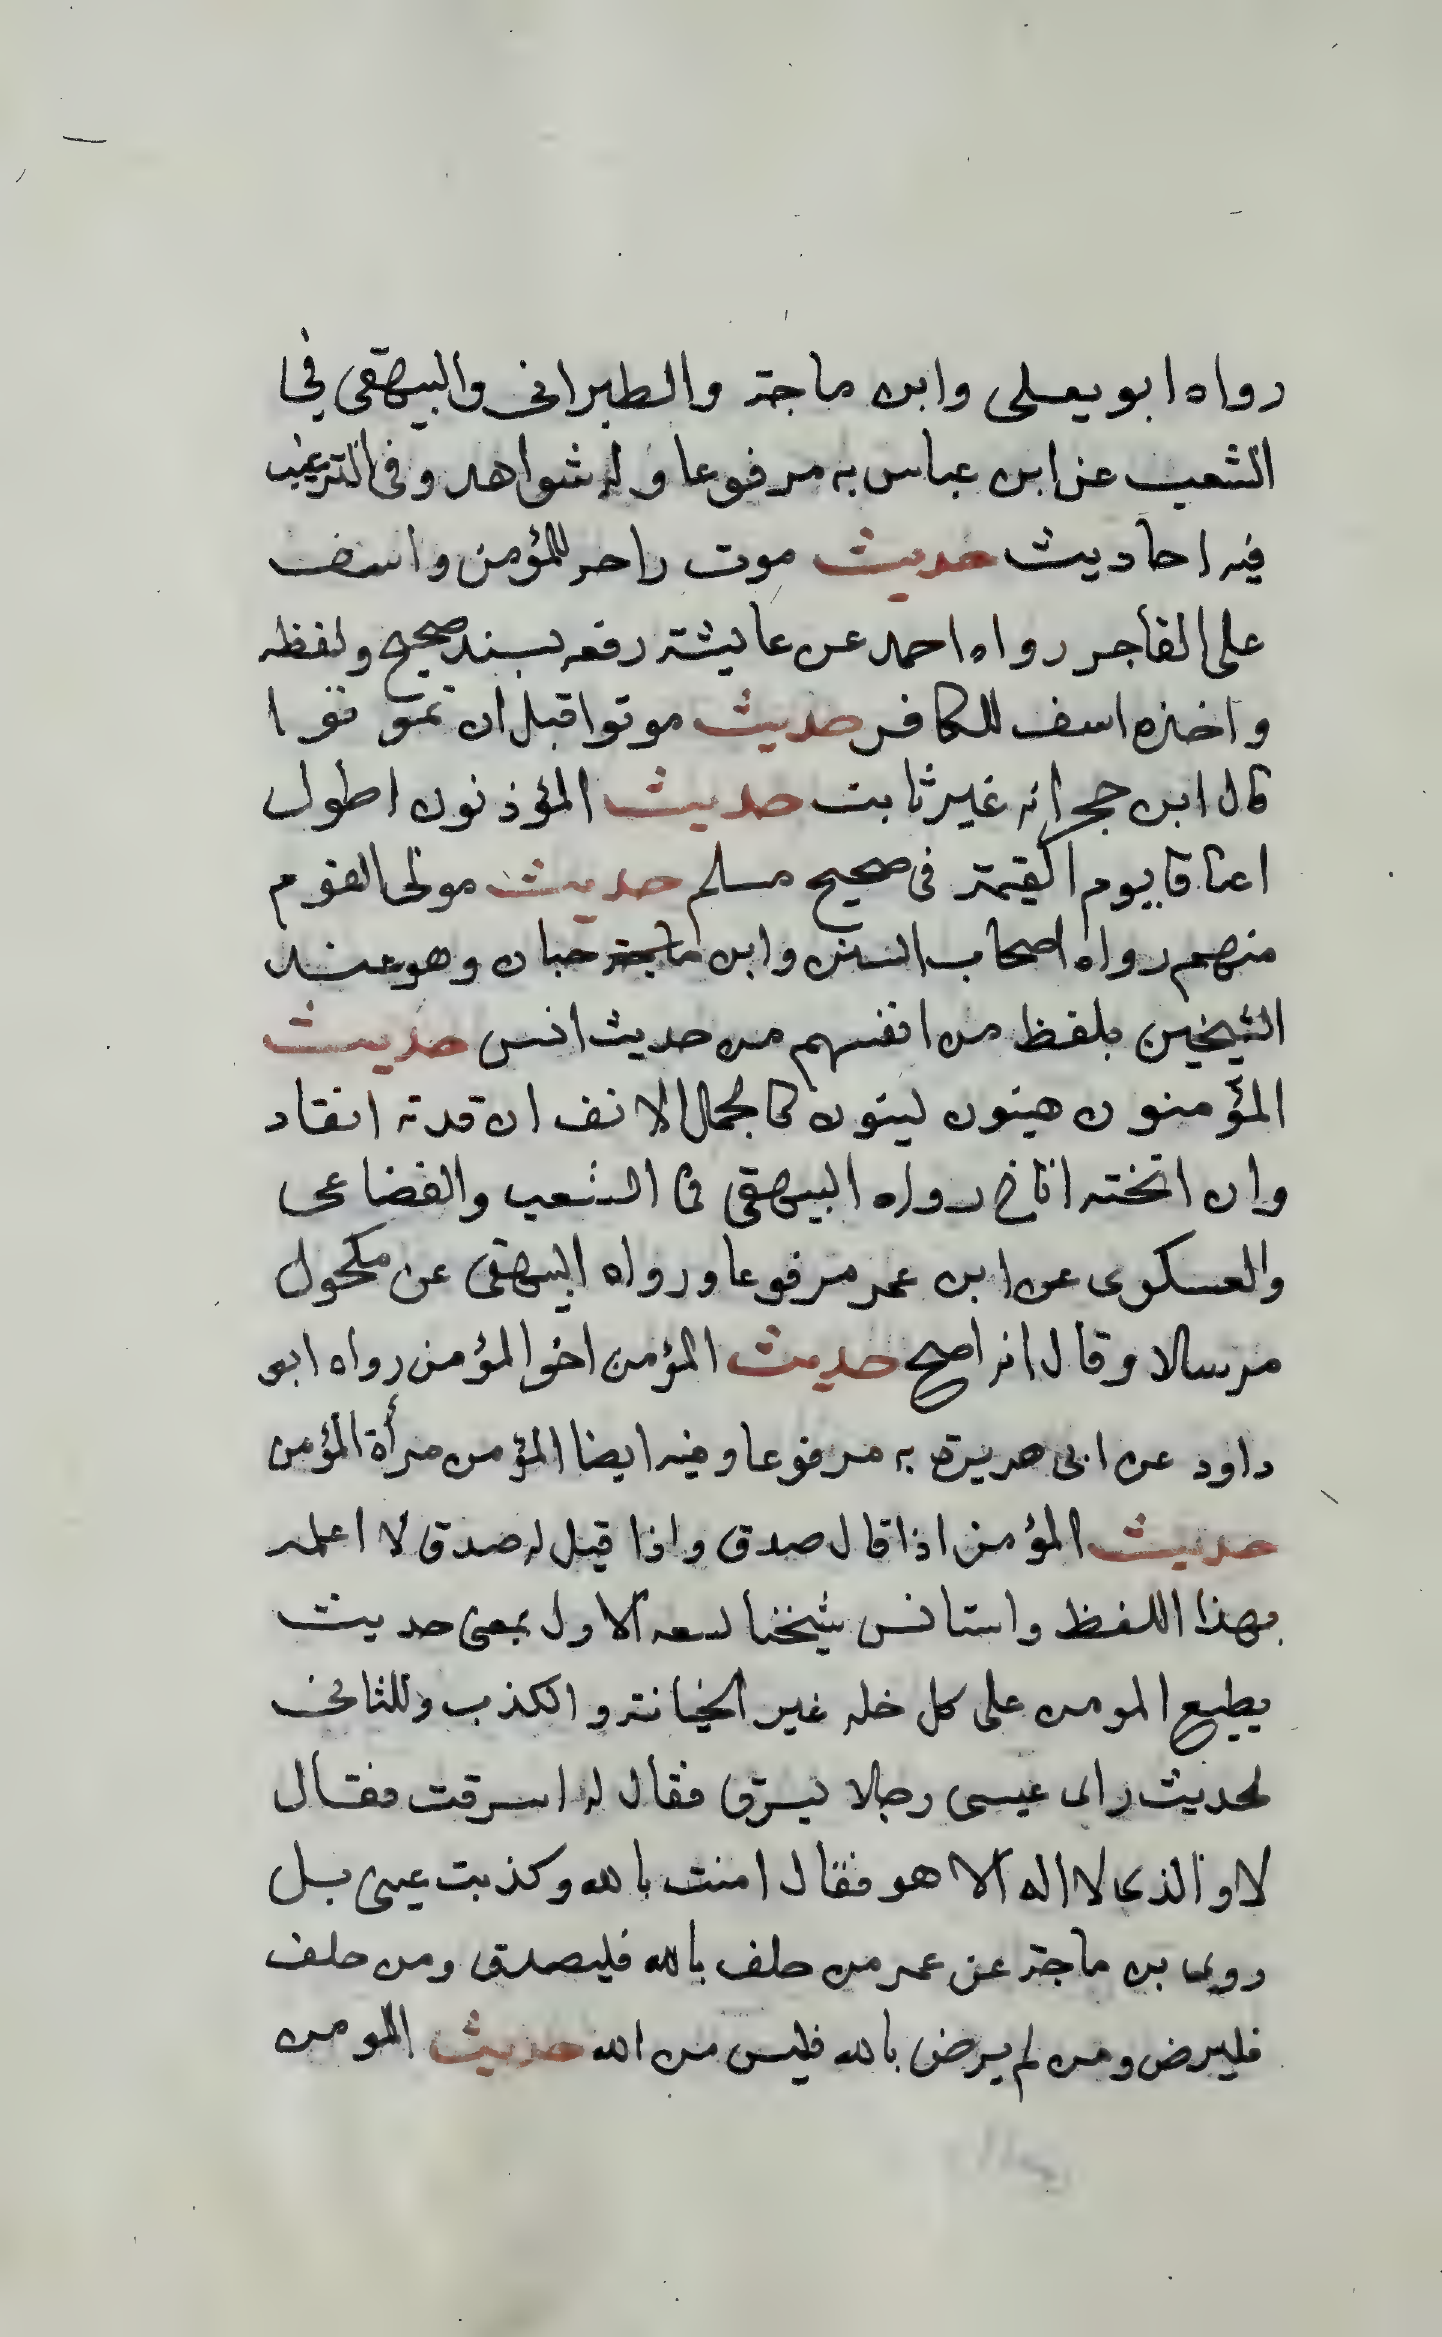 رواه ابو يعلى وابن ماجة والطبرانى والبيهقى في
الشعب عن ابن عباس به مرفوعا وله شواهد وفى الترغيب
فيه احاديث حديث موت راحه للمؤمن واسف
على الفاجر رواه احمد عن عايشة رفعه بسند صحيح ولفظه
واخذه اسف للكافر حديث موتوا قبل ان تموتوا
قال ابن حجر انه غير ثابت حديث المؤذنون اطول
اعناقا يوم القيمة فى صحيح مسلم حديث مولى القوم
منهم رواه اصحاب السنن وابن ماجة حبان وهو عند
الشيخين بلفظ من انفسهم من حديث انس حديث
المؤمنون هينون لينون كالجمل الانف ان قدته انقاد
وان انخته اناخ رواه البيهقى فى الشعب والقضاعى
والعسكرى عن ابن عمر مرفوعا ورواه البيهقى عن مكحول
مرسلا وقال انه اصح حديث المؤمن اخو المؤمن رواه ابو
داود عن ابى هريرة به مرفوعا وفيه ايضا المؤمن مرأة المؤمن
حديث المؤمن اذا قال صدق واذا قيل له صدق لا اعلمه
بهذا اللفظ واستانس شيخنا لمعه الاول بمعنى حديث
يطبع المومن على كل خله غير الخيانة والكذب وللثانى
لحديث راى عيسى رجلا يسرق فقال له اسرقت فقال
لا والذى لا اله الا هو فقال امنت بالله وكذبت عينى بل
روى بن ماجة عن عمر من حلف بالله فليصدق ومن حلف
فليرض ومن لم يرض بالله فليس من الله حديث المومن